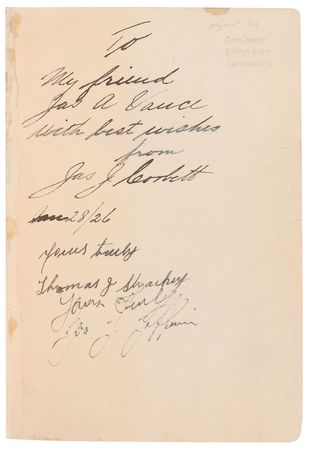 To
My friend
Jas A Vance
with best wishes
from
Jas J Corbett
Jan 28/26
Yours truly
Thomas J Sharkey
Yours Truly
Jas J Jeffries
Signed by
Corbett
Sharkey
Jeffries